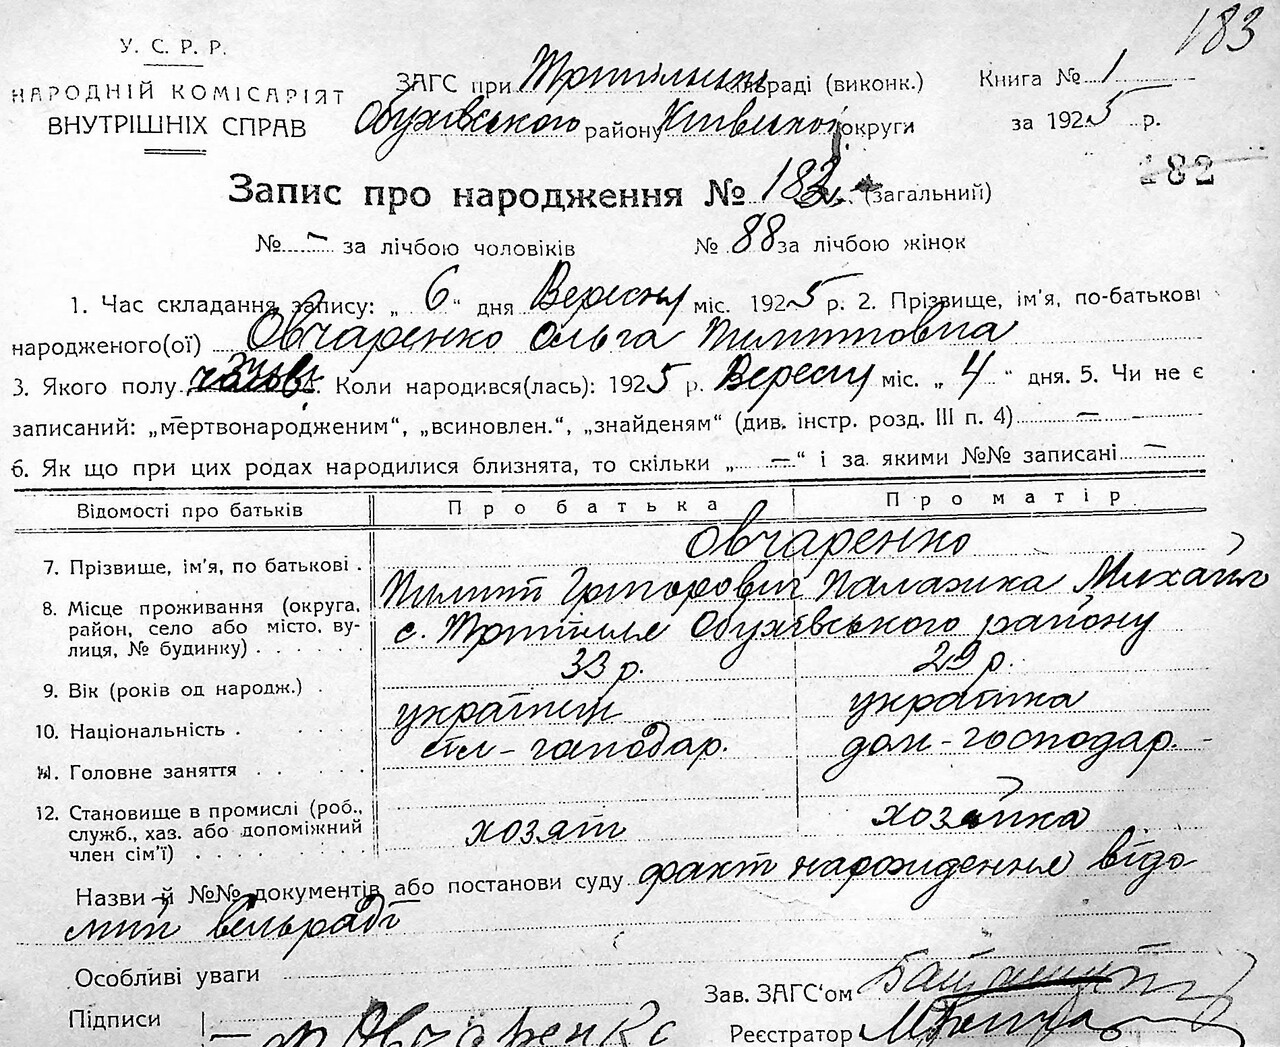 183
У. С. Р. Р.
НАРОДНІЙ КОМІСАРІЯТ
ВНУТРІШНІХ СПРАВ
ЗАГС при раді (виконк.)
Обухівського району Київської округи
Книга № 1
за 1925 р.
182
Запис про народження № 182 (загальний)
№ – за лічбою чоловіків № 88 за лічбою жінок
1. Час складання запису: „ 6 “ дня Вересня міс. 1925 р. 2. Прізвище, ім'я, по-батькові
народженого(ої) Овчаренко Ольга Пилиповна
3. Якого полу Коли народився(лась): 1925 р. Вересня міс. „ 4 “ дня. 5. Чи не є
записаний: „мертвонародженим“, „всиновлен.“, „знайденям“ (див. інстр. розд. III п. 4) –
6. Як що при цих родах народилися близнята, то скільки „ – “ і за якими №№ записані –
Відомості про батьків Про батька Про матір
Овчаренко
7. Прізвище, ім'я, по батькові .
Пилип Григорович Палажка Михайл
8. Місце проживання (округа,
район, село або місто, ву-
лиця, № будинку) . . . . . .
с. Обухівського району
9. Вік (років од народж.) . 33 р. 29 р.
10. Національність . українец українка
11. Головне заняття . . . . . гаподар. дом-господар. -
12. Становище в промислі (роб.,
служб., хаз. або допоміжний
член сім'ї) . . . . . . . . .
хозяин хозяйка
Назви й №№ документів або постанови суду факт народження відо
мий сельраді
Особливі уваги
Зав. ЗАГС'ом
Підписи Овчаренко
Реєстратор